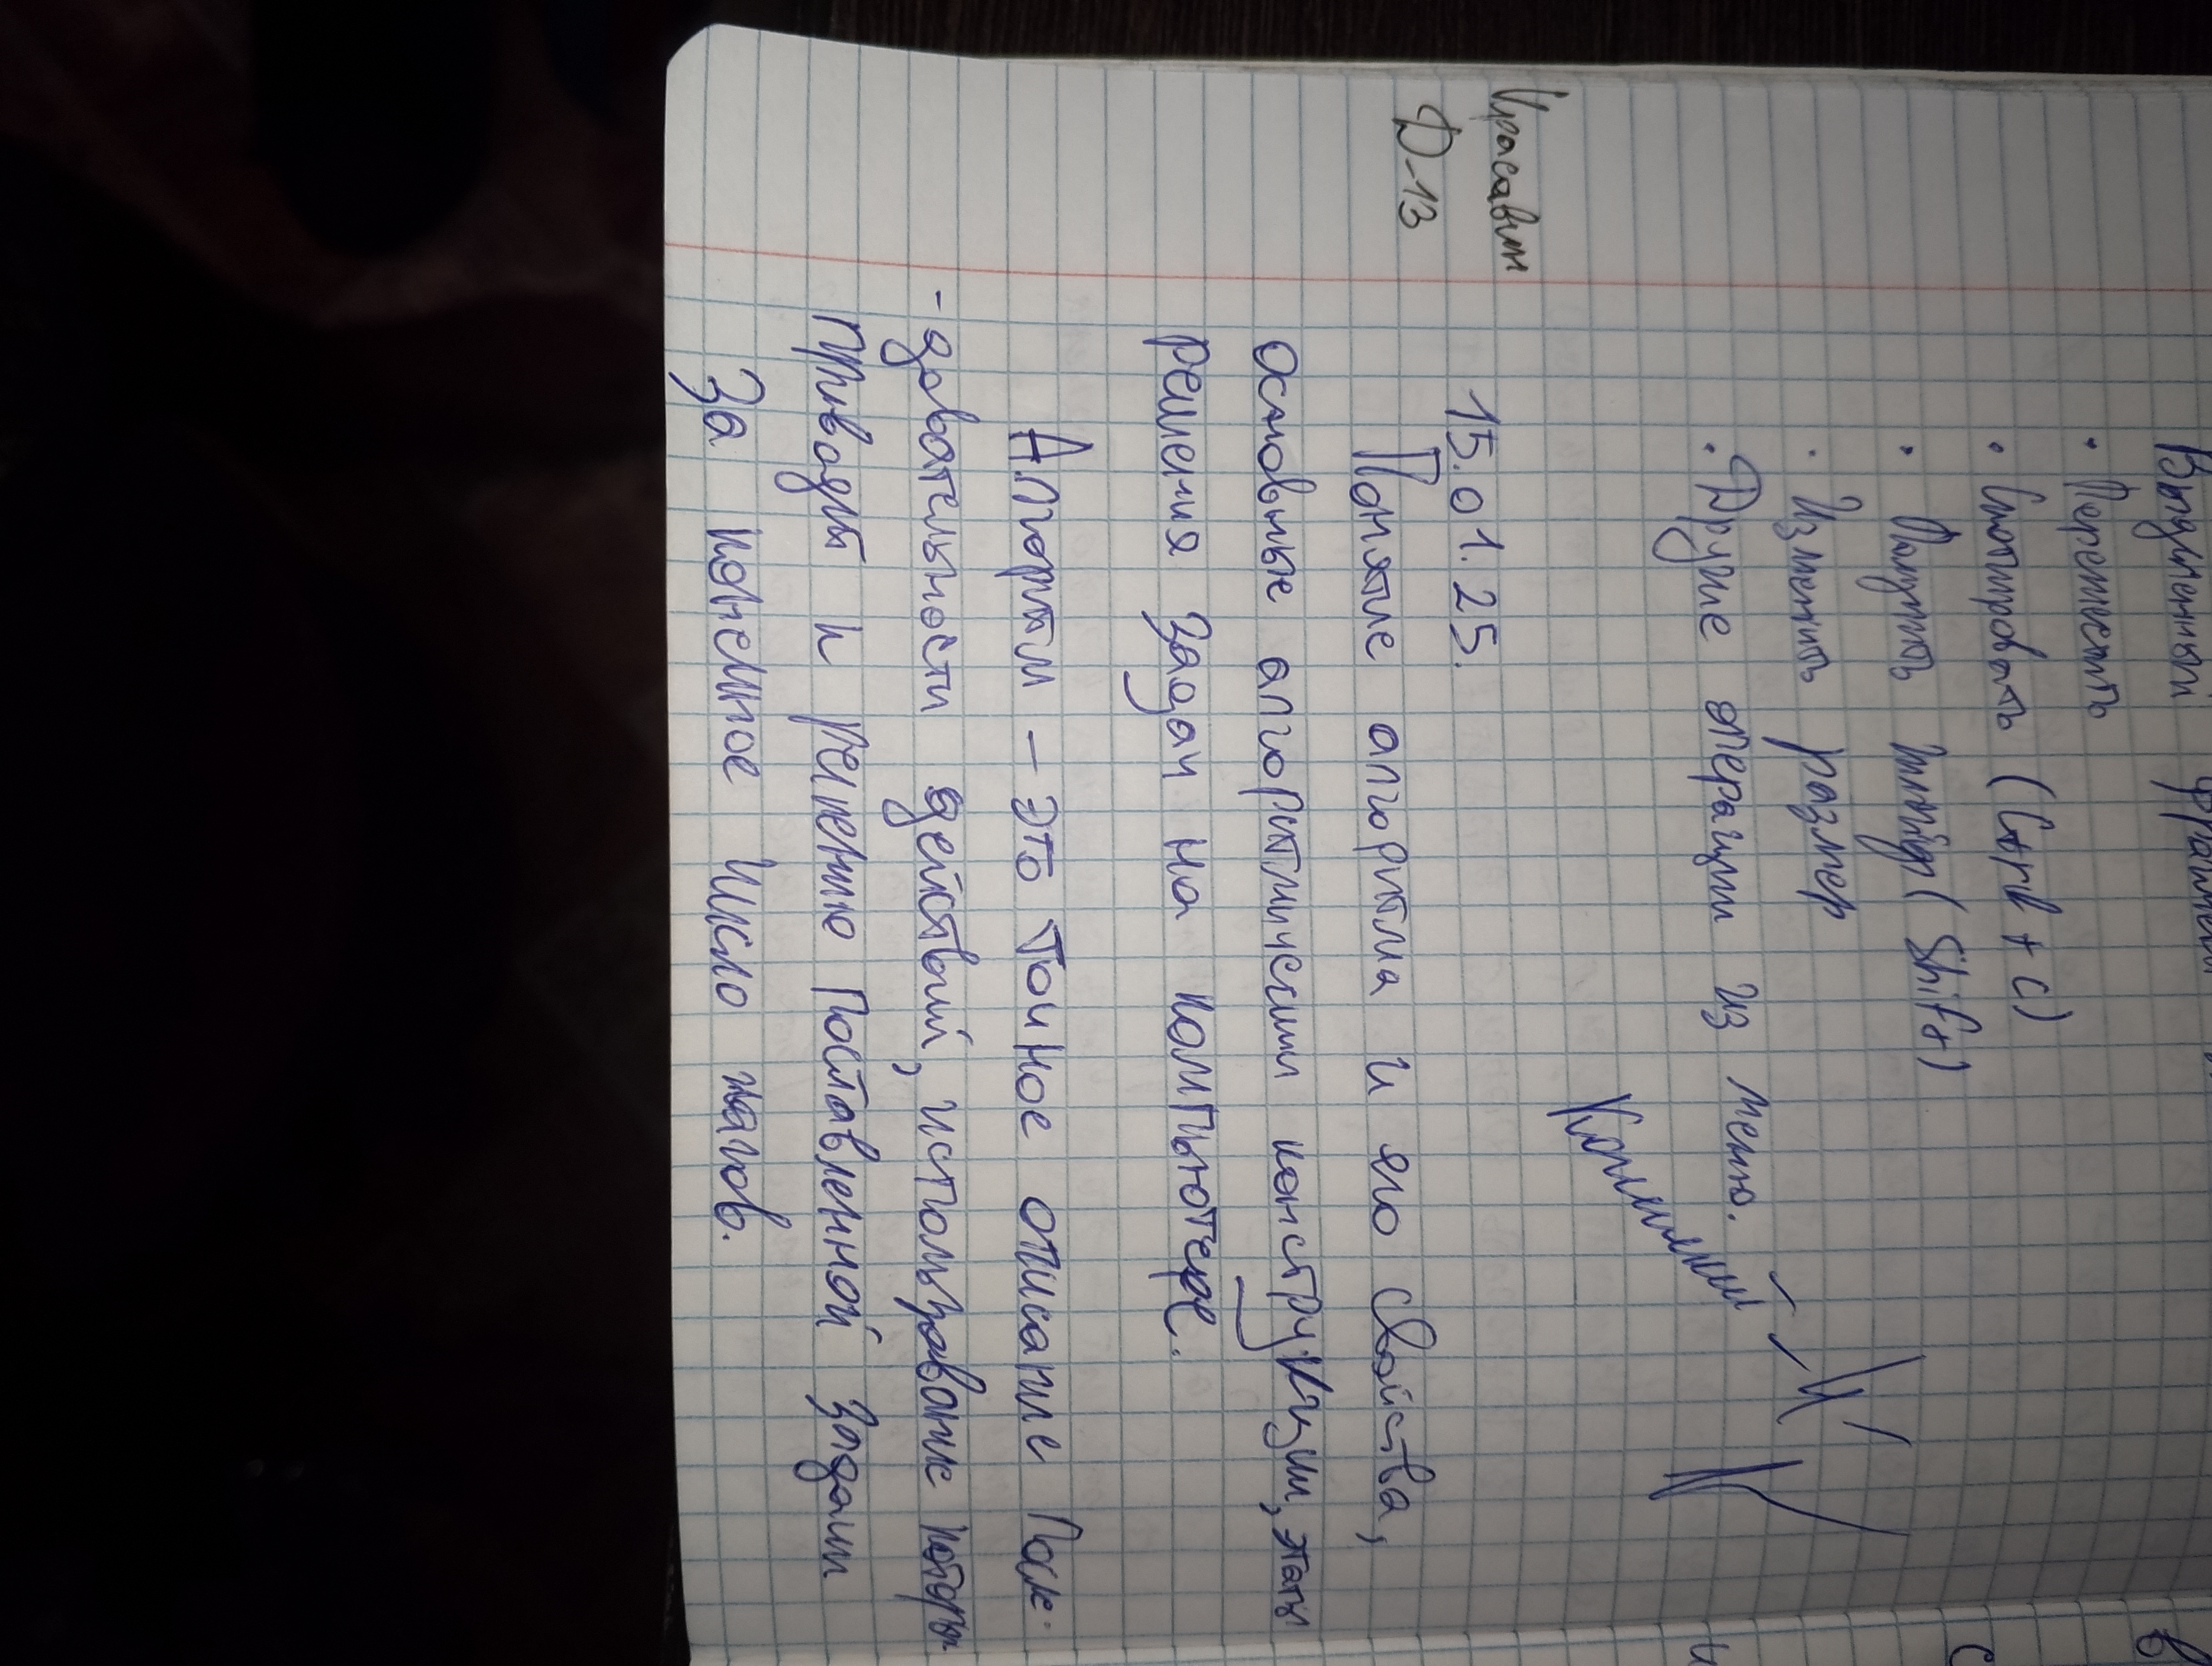 • Переместить
• Скопировать (Ctrl + C)
• Получить (Shift)
• Изменить размер
• Другие операции из меню.
Красавин
Д-13
15.01.25.
Понятие алгоритма и его свойства,
основные алгоритмически конструкции, этапы
решения задач на компьютере.
Алгоритм – это точное описание После-
-довательности действий, использование которы
приводят к решению поставленной задачи
За конечное Число шагов.